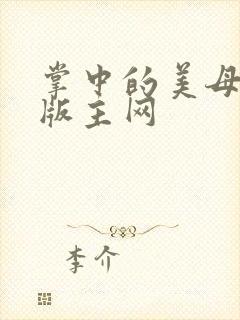 掌中的美母
版主网
李介